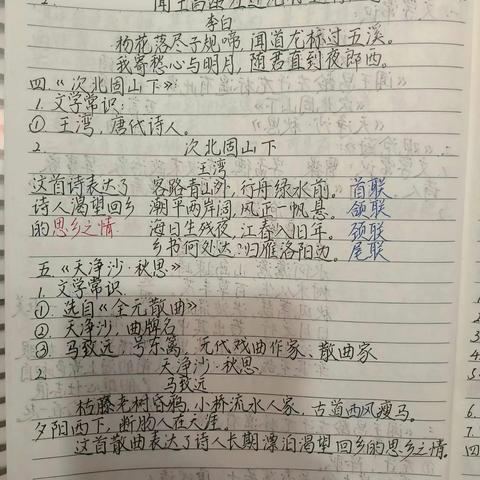 李白
杨花落尽子规啼,闻道龙标过五溪。
我寄愁心与明月,随君直到夜郎西。
四.《次北固山下》:
1.文学常识:
① 王湾,唐代诗人。
2. 次北固山下
王湾
这首诗表达了 客路青山外,行舟绿水前。 首联
诗人渴望回乡 潮平两岸阔,风正一帆悬。 颔联
的思乡之情. 海日生残夜,江春入旧年。 颈联
乡书何处达?归雁洛阳边。 尾联
五.《天净沙·秋思》
1.文学常识
① 选自《全元散曲》
② 天净沙,曲牌名
③ 马致远,号东篱,元代戏曲作家、散曲家
2. 天净沙·秋思
马致远
枯藤老树昏鸦,小桥流水人家,古道西风瘦马。
夕阳西下,断肠人在天涯。
这首散曲表达了诗人长期漂泊渴望回乡的思乡之情.